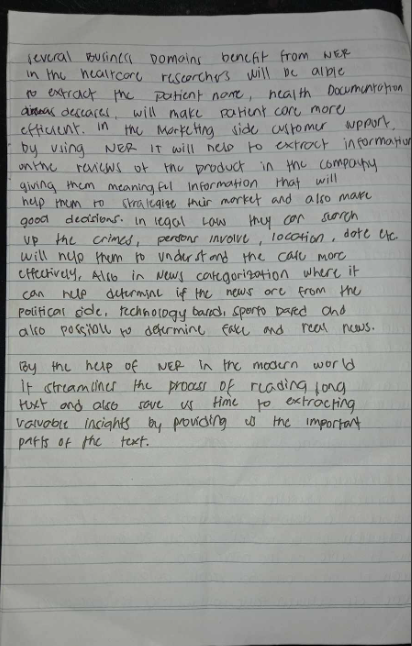 several Business Domains benefit from NER
in the healtcare researchers will be alble
to extract the patient name, health Documentation
descases, will make patient care more
efficient. In the Marketing side customer support,
by using NER it will help to extract information
on the reviews of the product in the company
giving them meaningful Information that will
help them to stratagize their market and also make
good decisions. in legal Law they can search
up the crimes, persons involve, location, date etc
will help them to understand the case more
effectively, Also in News categorization where it
can help determine if the news are from the
political side, technology based, sports based and
also possible to determine fake and real news.
By the help of NER in the modern world
it streamlines the process of reading long
text and also save us time to extracting
valuable insights by providing us the important
parts of the text.